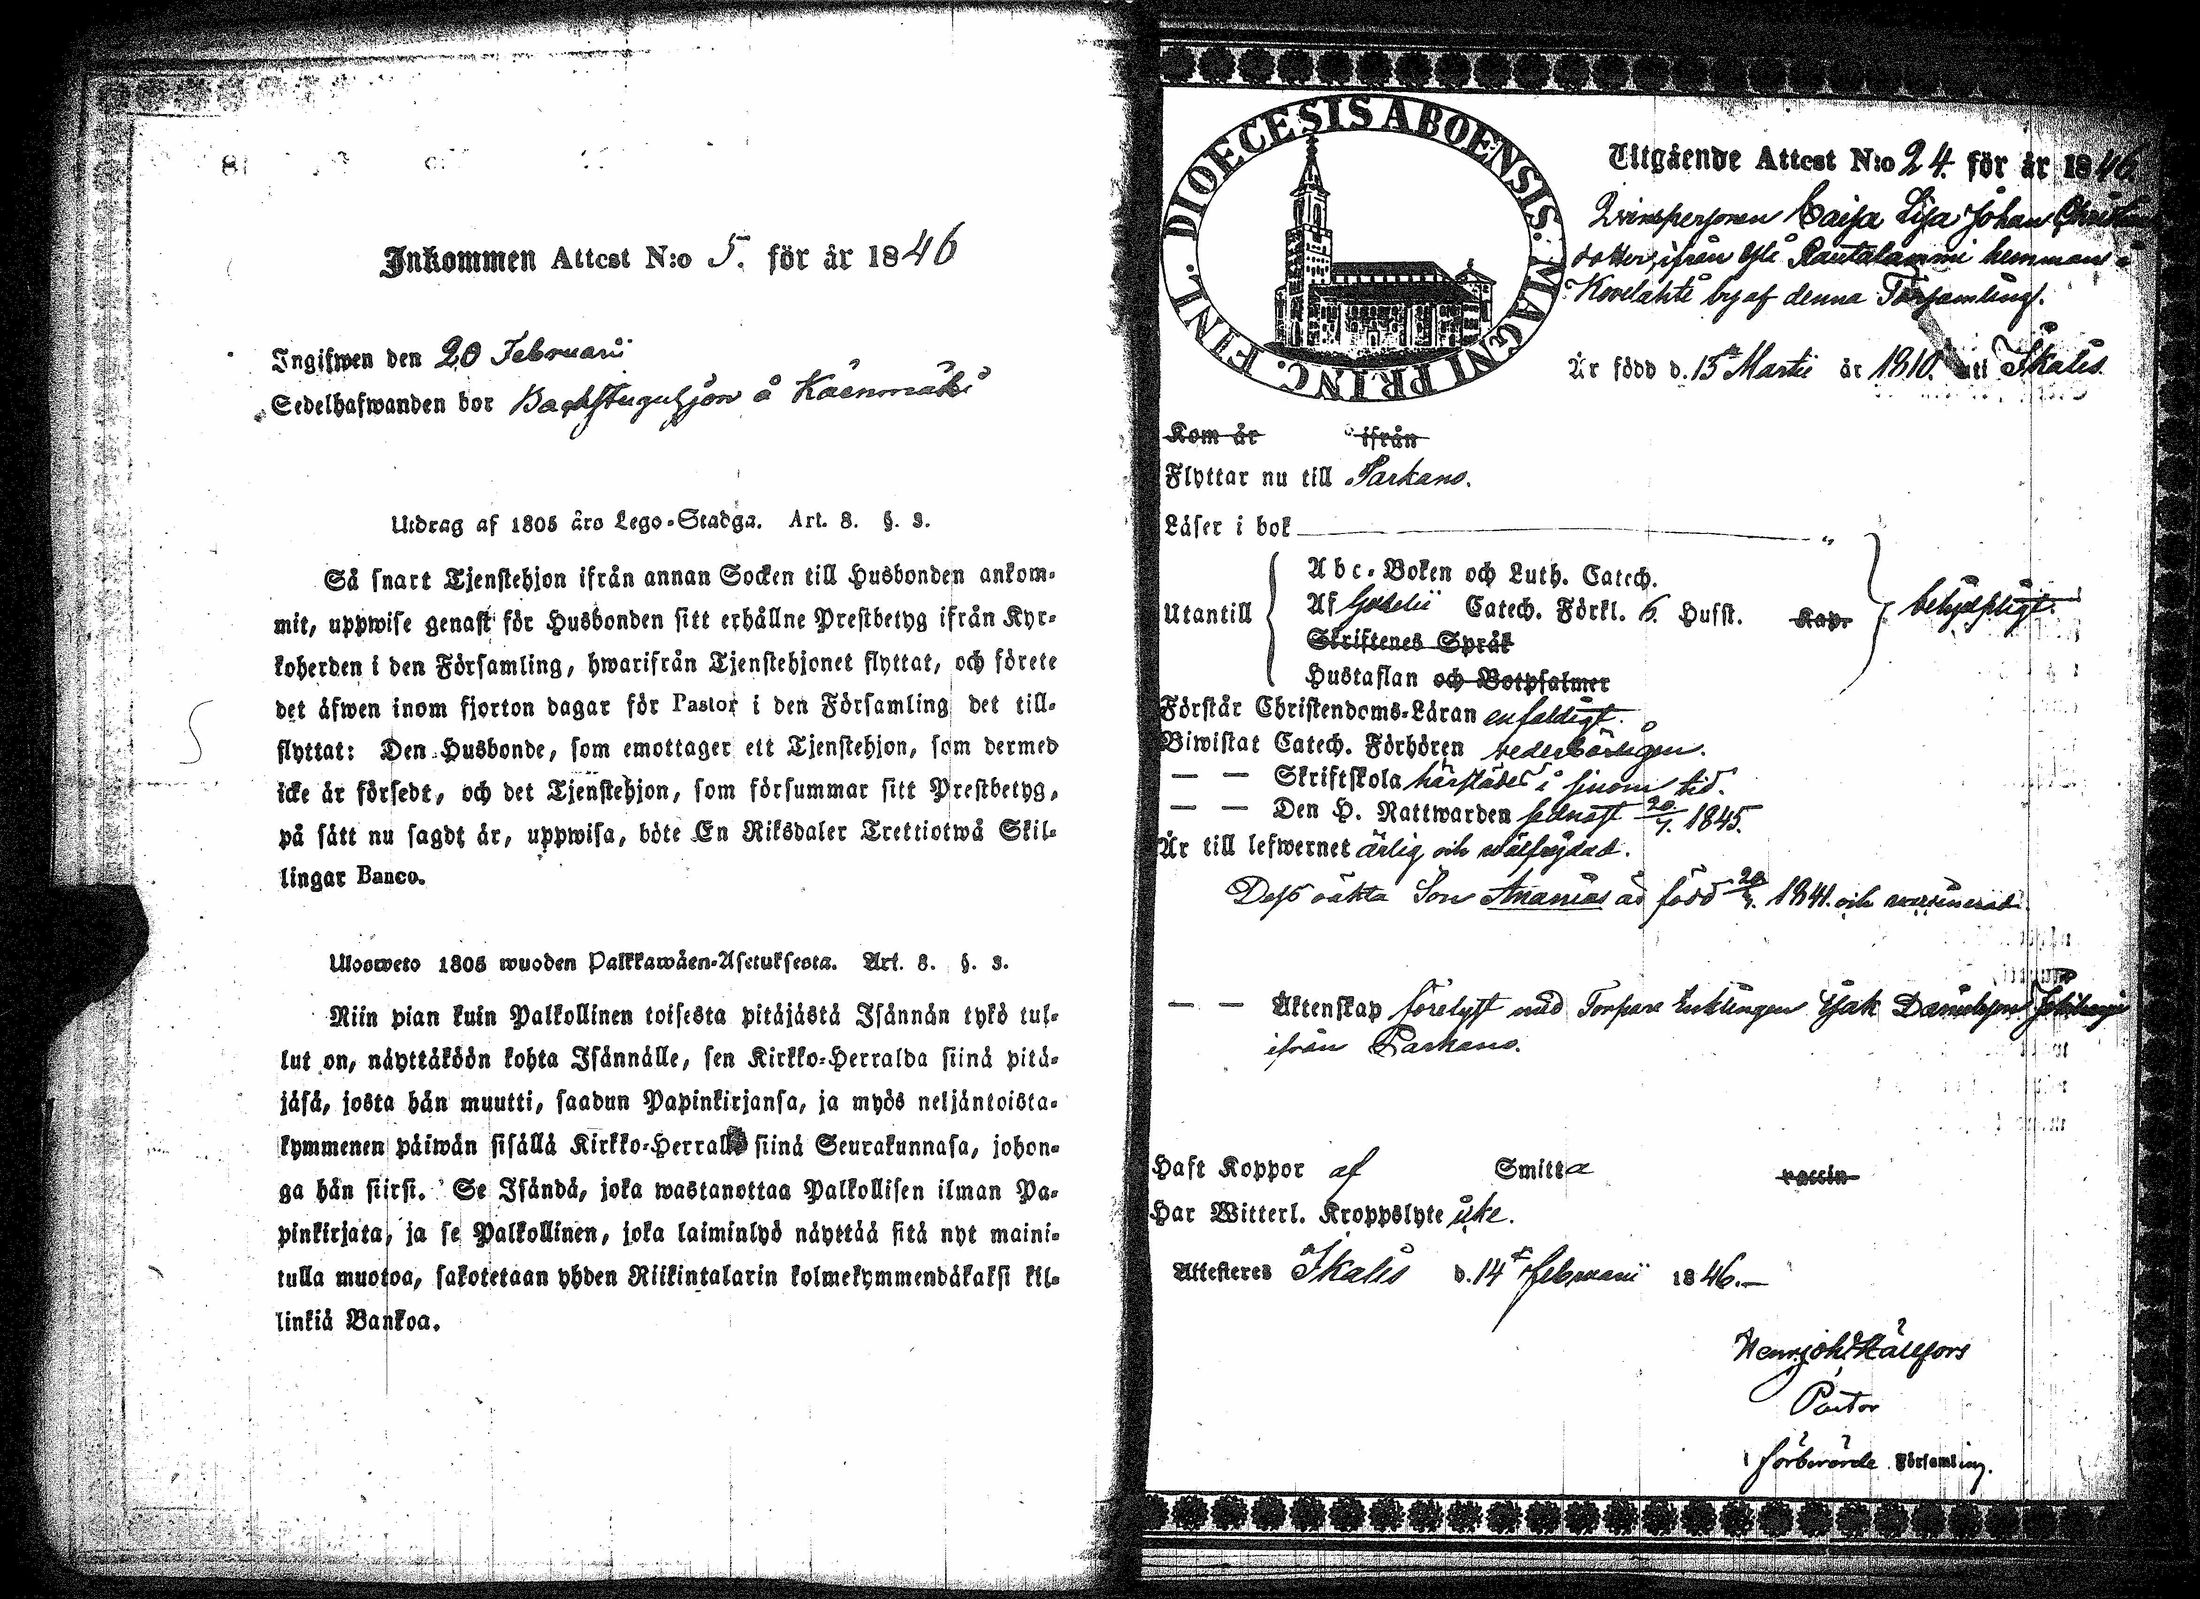 Inkommen Attest N:o 5. för år 1846
Ingifwen den 20 Februarii
Sedelhafwanden bor Backstuguhjon å Käenmäki
Utdrag af 1805 års Lego-Stadga. Art. 8. §. 3.
Så snart Tjenstehjon ifrån annan Socken till Husbonden ankom-
mit, uppwise genast för Husbonden sitt erhållne Prestbetyg ifrån Kyr-
koherden i den Församling, hwarifrån Tjenstehjonet flyttat, och förete
det äfwen inom fjorton dagar för Pastor i den Församling det till-
flyttat: Den Husbonde, som emottager ett Tjenstehjon, som dermed
icke är försedt, och det Tjenstehjon, som försummar sitt Prestbetyg,
på sätt nu sagdt är, uppwisa, böte En Riksdaler Trettiotwå Skil-
lingar Banco.
Ulosweto 1805 wuoden Palkkawäen-Asetuksesta. Art. 8. §. 3.
Niin pian kuin Palkollinen toisesta pitäjästä Isännän tykö tul-
lut on, näyttäköön kohta Isännälle, sen Kirkko-Herralda siinä pitä-
jäsä, josta hän muutti, saadun Papinkirjansa, ja myös neljäntoista-
kymmenen päiwän sisällä Kirkko-Herralle siinä Seurakunnasa, johon-
ga hän siirsi. Se Isändä, joka wastanottaa Palkollisen ilman Pa-
pinkirjata, ja se Palkollinen, joka laiminlyö näyttää sitä nyt maini-
tulla muotoa, sakotetaan yhden Riikintalarin kolmekymmendäkaksi kil-
linkiä Bankoa.
DIOECESIS ABOENSIS. MAGNI PRINC. FINL.
Utgående Attest N:o 24. för år 1846.
Qvinspersonen Caisa Lisa Johan Christians
dotter, ifrån Rautalammi hemman i
Kovelahti by af denna Församling.
Är född d. 15de Martii år 1810. uti Ikalis
Kom år ifrån
Flyttar nu till Parkano.
Läser i bok
Utantill
Abc-Boken och Luth. Catech.
Af Catech. Förkl. Husst. Kap.
Skriftenes Språk
Hustaflan och Botpsalmer
behjelpligt.
Förstår Christendoms-Läran enfaldigt.
Biwistat Catech. Förhören vederbörligen.
— — Skriftskola härstädes i sinom tid.
— — Den H. Nattwarden sednast 20/7. 1845.
Är till lefwernet ärlig och wälfrejdad.
Dess oäkta Son Ananias är född 1841. och vaccinerad.
— — Äktenskap förelyst med Torpare Enklingen Isak Danielsson
ifrån Parkano.
Haft Koppor af Smitta vaccin
Har Witterl. Kroppslyte icke.
Attesteras Ikalis d. 14de Februarii 1846.—
Henr. Joh. Hällfors
Pastor
i förberörde Församling.